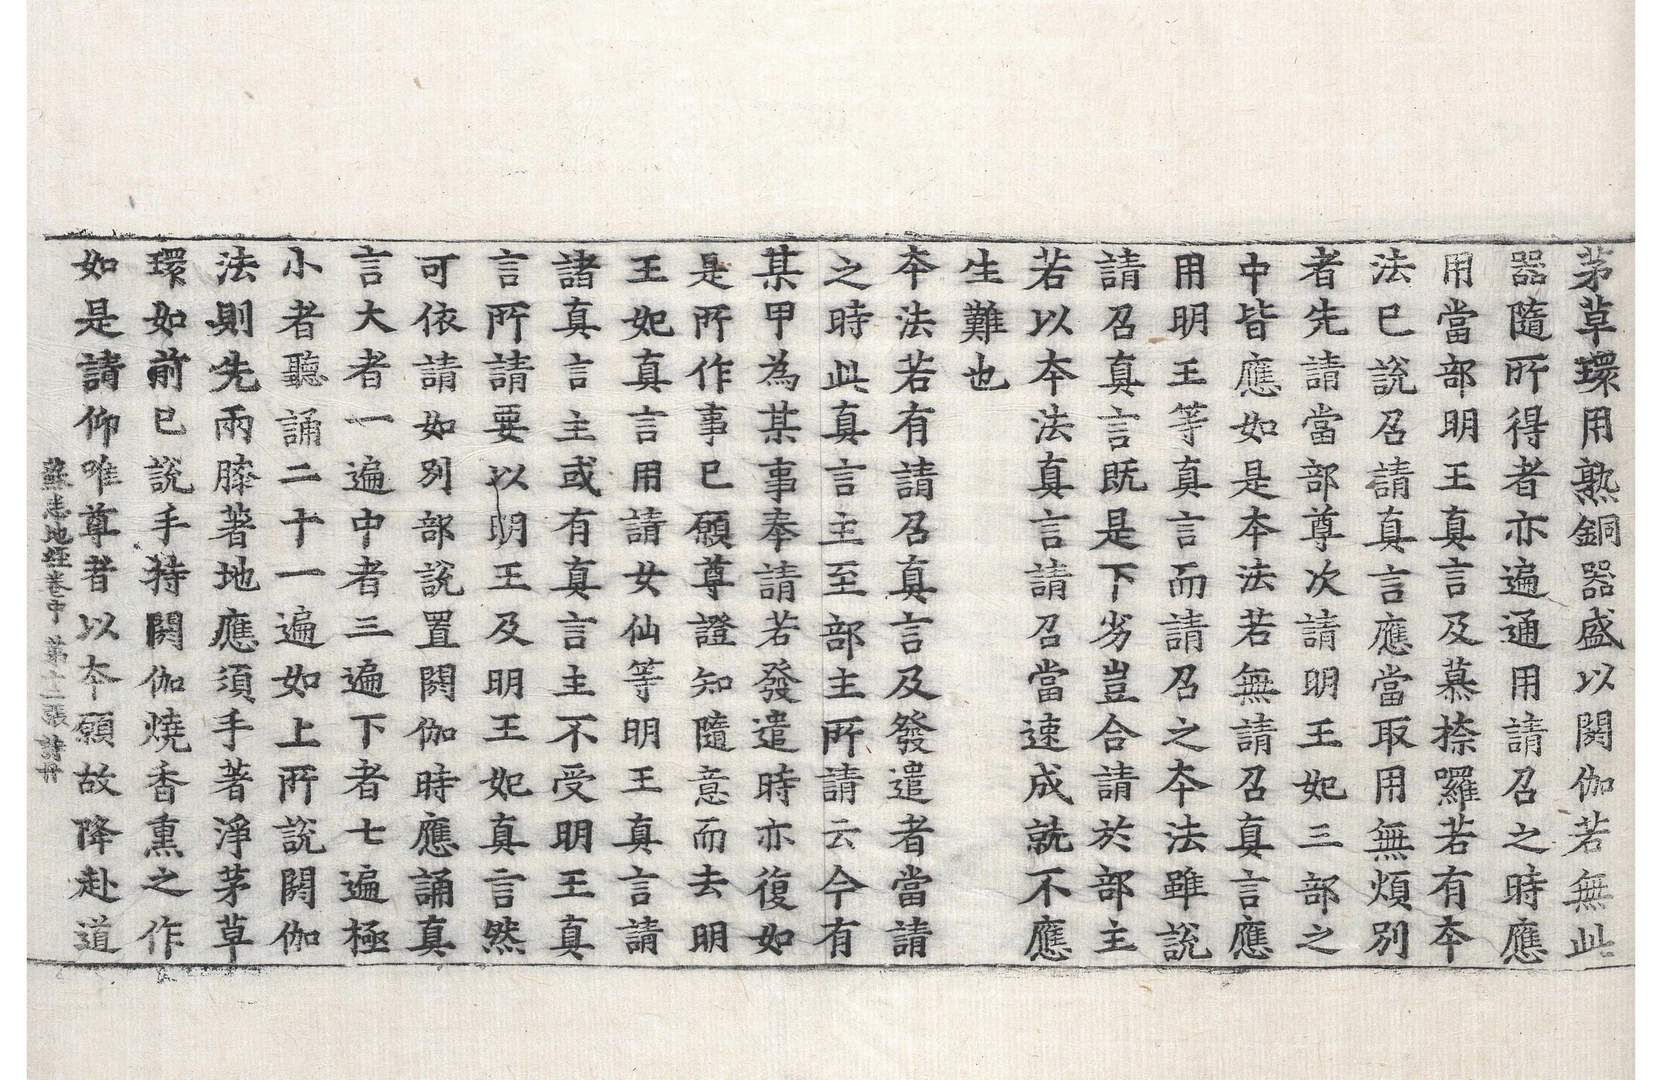 茅草環用熟銅器盛以閼伽若無此
器隨所得者亦遍通用請召之時應
用當部明王真言及慕捺囉若有本
法已說召請真言應當取用無煩別
者先請當部尊次請明王妃三部之
中皆應如是本法若無請召真言應
用明王等真言而請召之本法雖說
請召真言既是下劣豈合請於部主
若以本法真言請召當速成就不應
生難也
本法若有請召真言及發遣者當請
之時此真言主至部主所請云今有
某甲為某事奉請若發遣時亦復如
是所作事已願尊證知隨意而去明
王妃真言用請女仙等明王真言請
諸真言主或有真言主不受明王真
言所請要以明王及明王妃真言然
可依請如別部說置閼伽時應誦真
言大者一遍中者三遍下者七遍極
小者聽誦二十一遍如上所說閼伽
法則先兩膝著地應須手著淨茅草
環如前已說手持閼伽燒香熏之作
如是請仰唯尊者以本願故降赴道
蘇悉地經卷中 第十二張 詩